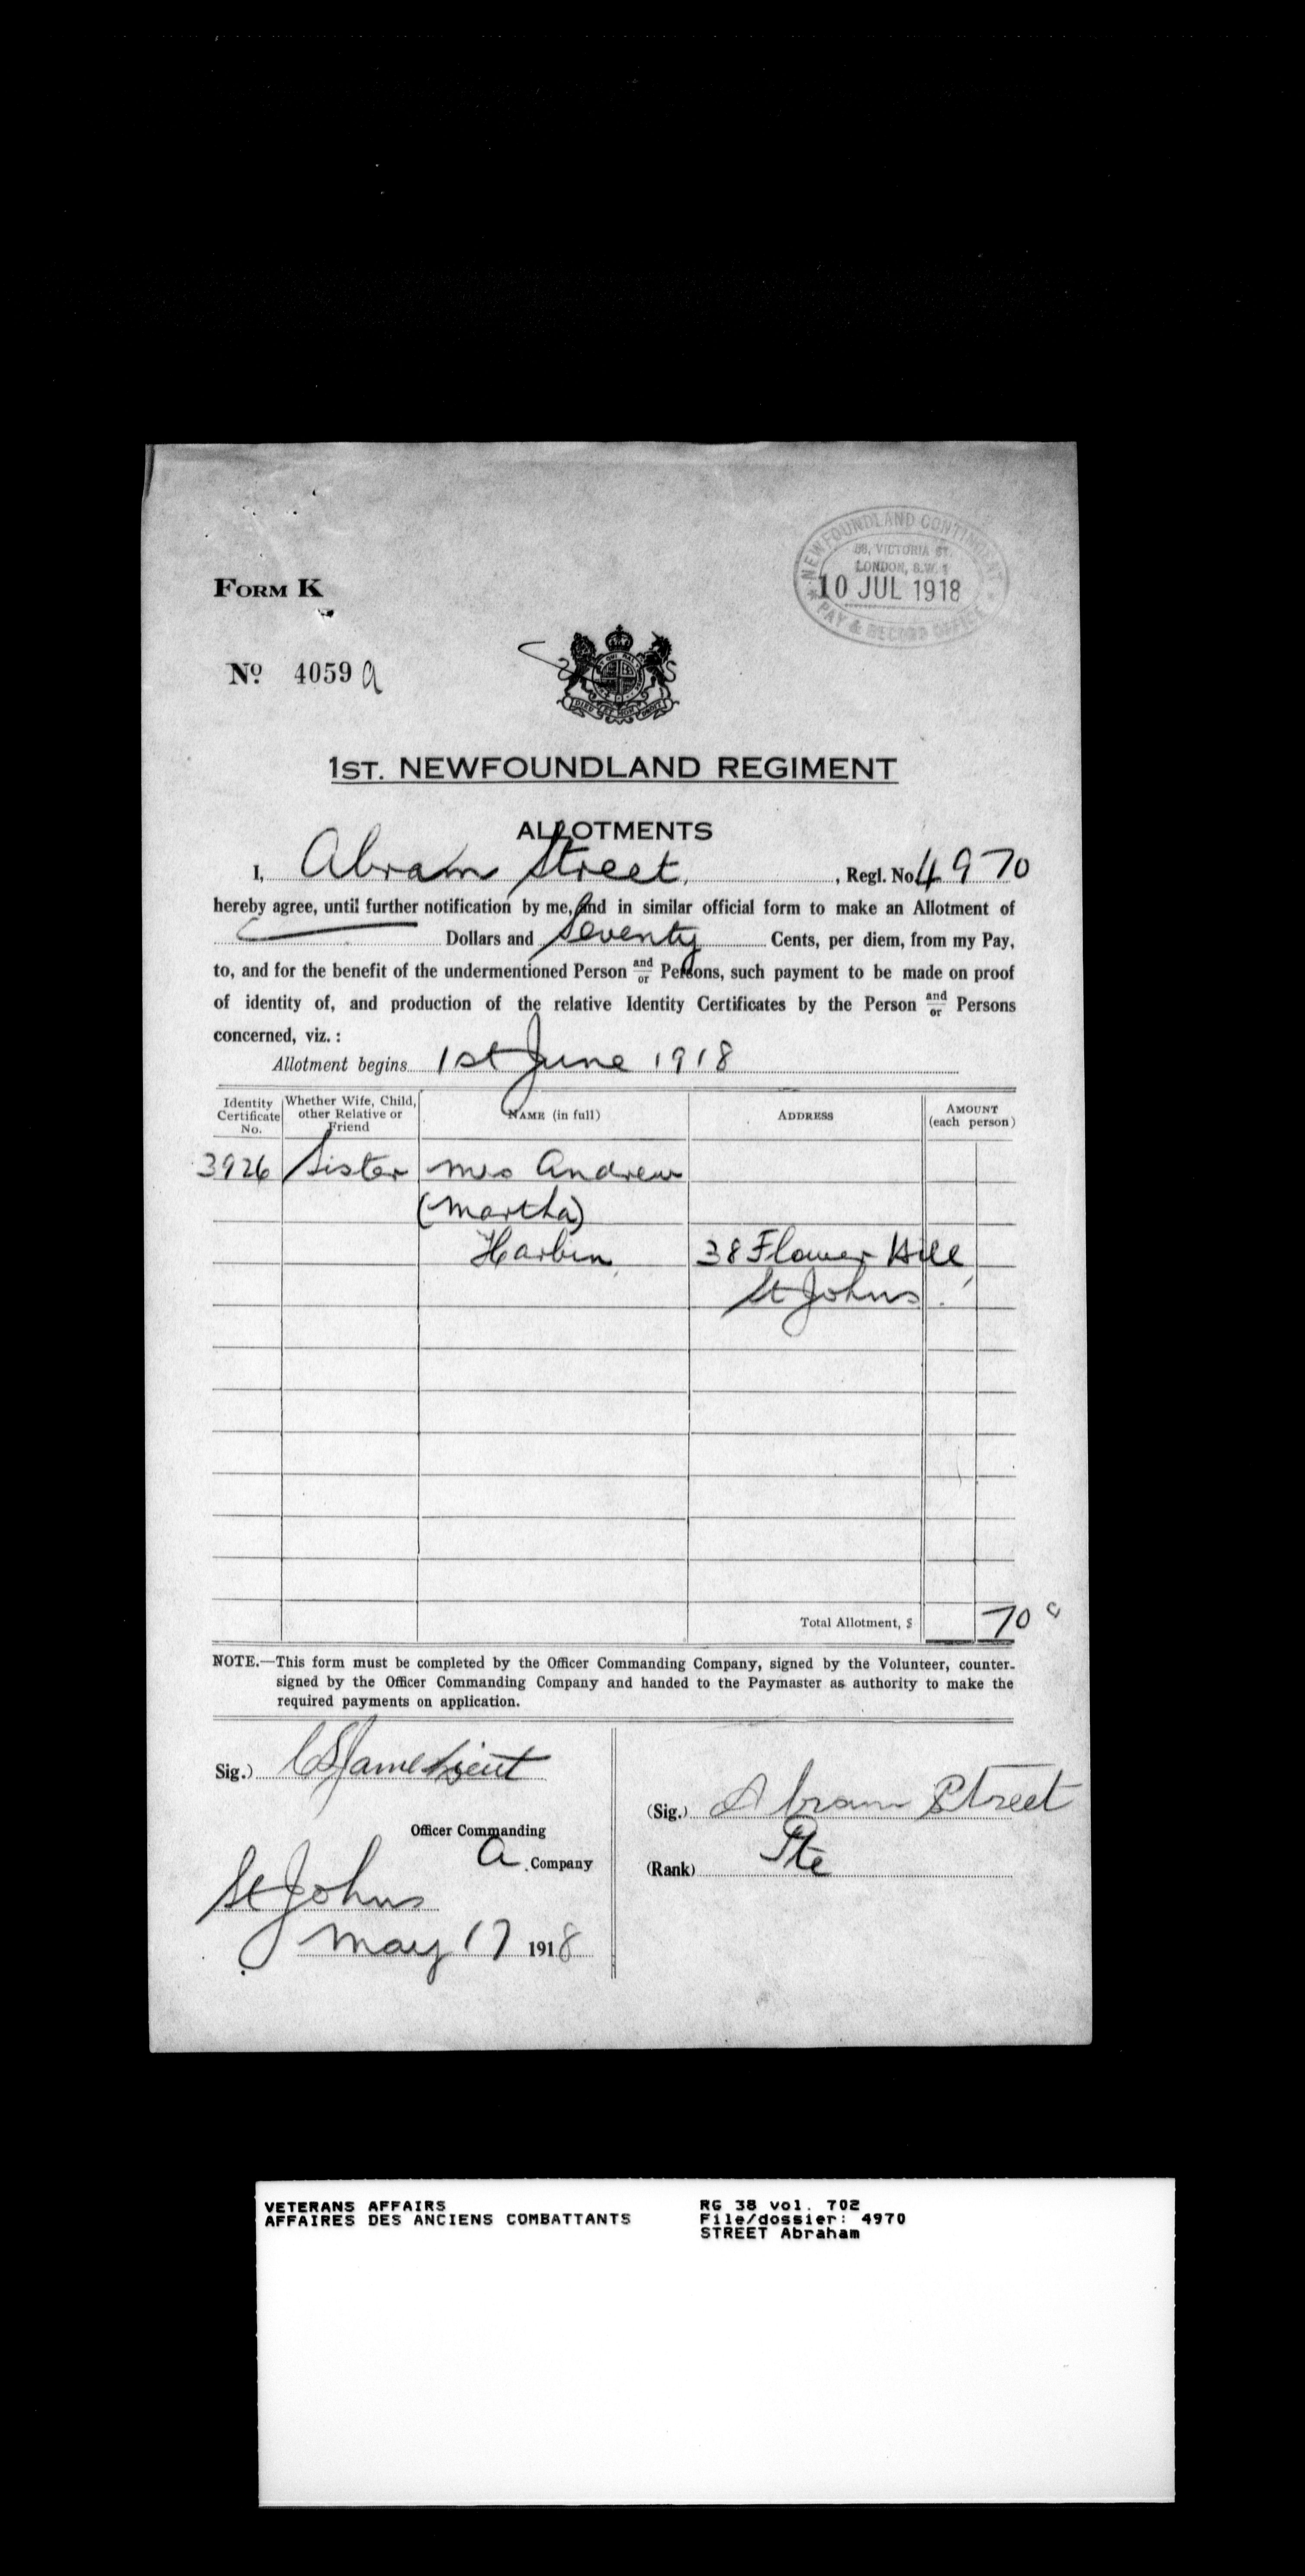 NEWFOUNDLAND CONTINGENT
58, VICTORIA ST.
LONDON, S.W. 1
10 JUL 1918
PAY & RECORD OFFICE
FORM K
No 4059 a
1ST. NEWFOUNDLAND REGIMENT
ALLOTMENTS
I, Abram Street, , Regl. No 4970
hereby agree, until further notification by me, and in similar official form to make an Allotment of
Dollars and Seventy Cents, per diem, from my Pay,
to, and for the benefit of the undermentioned Person and/or Persons, such payment to be made on proof
of identity of, and production of the relative Identity Certificates by the Person and/or Persons
concerned, viz. :
Allotment begins 1st June 1918
Identity Certificate No. Whether Wife, Child, other Relative or Friend NAME (in full) ADDRESS AMOUNT (each person)
3926 Sister Mrs Andrew
(Martha)
Harbin 38 Flower Hill
St Johns.
Total Allotment, $ 70 c
NOTE.—This form must be completed by the Officer Commanding Company, signed by the Volunteer, counter-
signed by the Officer Commanding Company and handed to the Paymaster as authority to make the
required payments on application.
Sig.) Lieut
(Sig.) Abram Street
Officer Commanding
A Company
(Rank) Pte
St Johns
May 17 1918
VETERANS AFFAIRS
AFFAIRES DES ANCIENS COMBATTANTS
RG 38 vol. 702
File/dossier: 4970
STREET Abraham